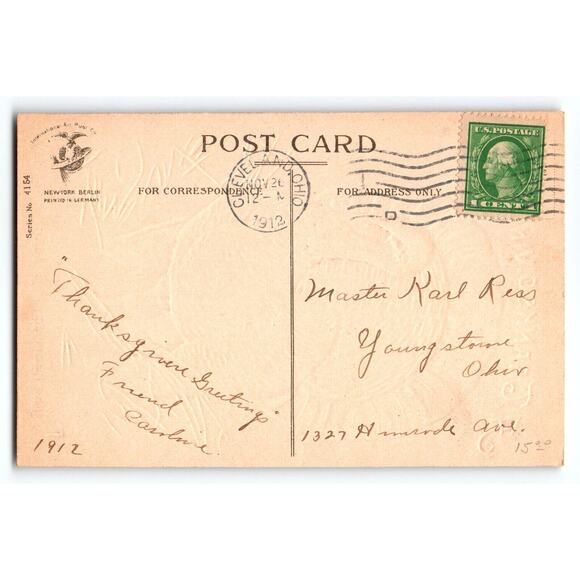 International Art Publ. Co.
NEW YORK BERLIN
PRINTED IN GERMANY
Series No. 4154
POST CARD
FOR CORRESPONDENCE
FOR ADDRESS ONLY
CLEVELAND, OHIO
NOV 26
12- M
1912
U.S. POSTAGE
1 CENT 1
"Thanksgiving Greetings"
Friend
Caroline.
1912
Master Karl Ress
Youngstown
Ohio
1327 Himrode Ave.
15.00